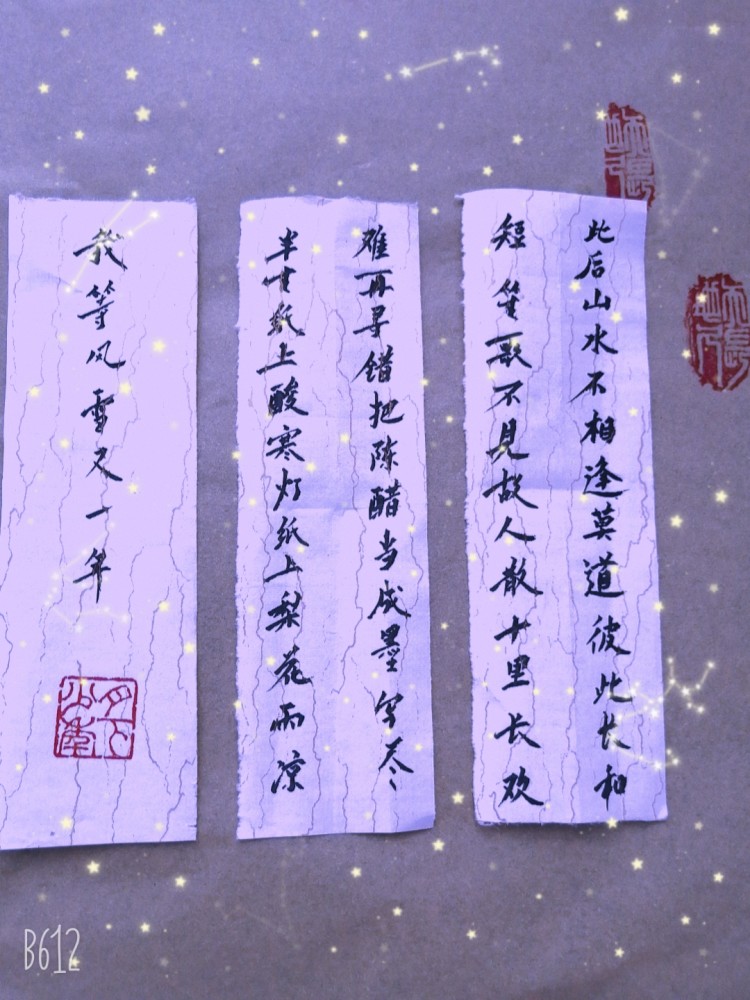 此后山水不相逢莫道彼此长和
短笙歌不見故人散十里长欢
难再寻错把陈醋当成墨写尽
半世纸上酸寒灯纸上梨花雨凉
我等风雪又一年
B612